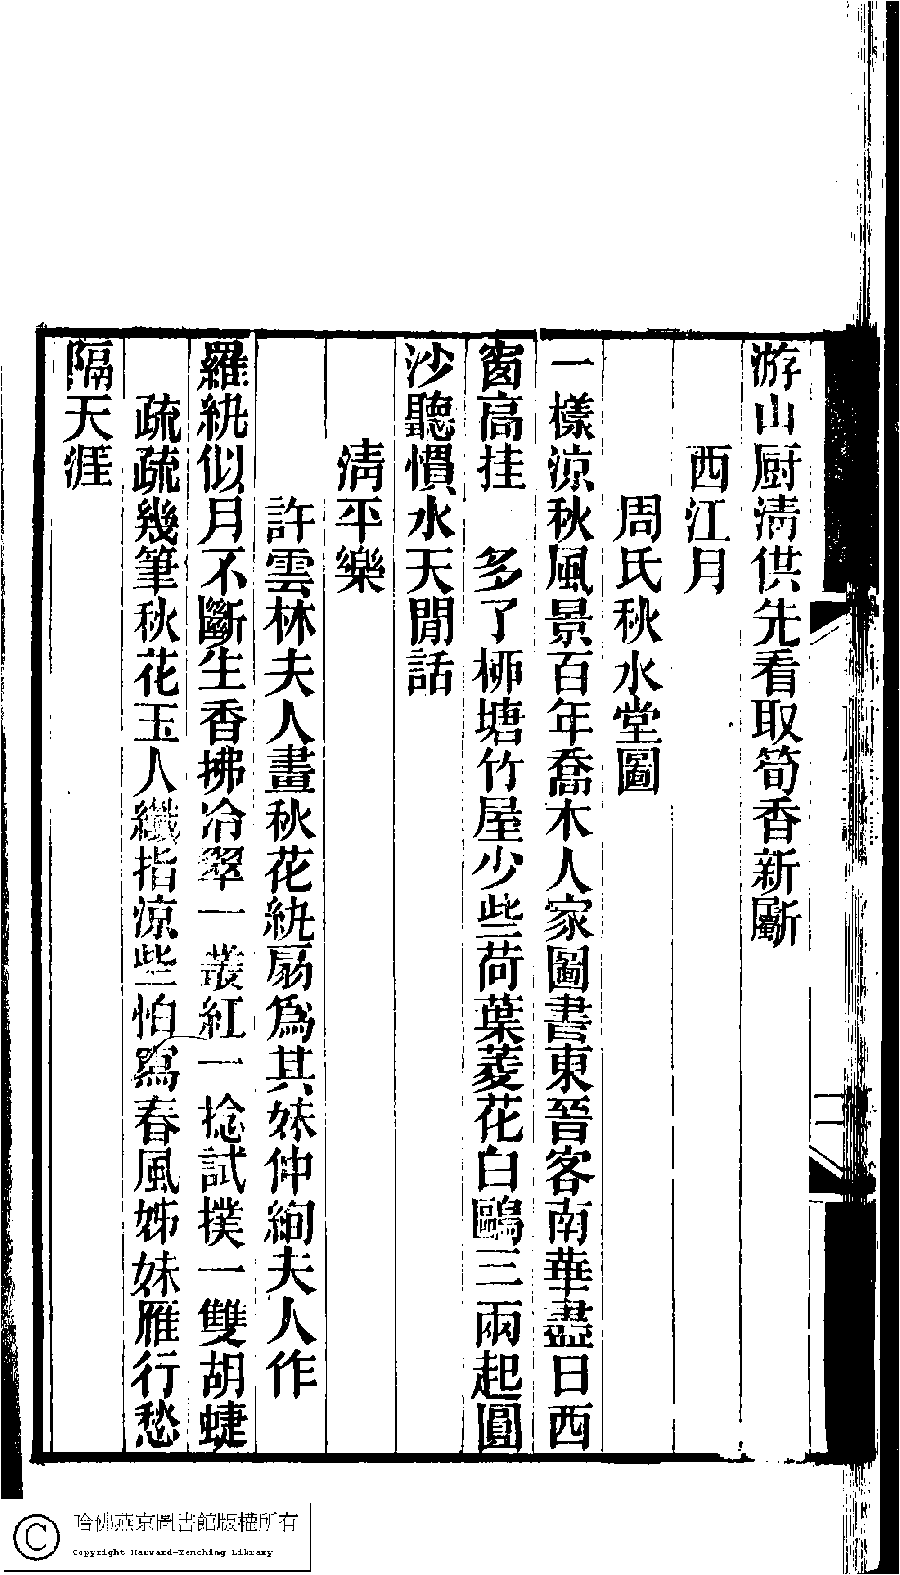 游山厨清供先看取筍香新斸
西江月
周氏秋水堂圖
一樣涼秋風景百年喬木人家圖書東晉客南華盡日西
窗高挂　多了柳塘竹屋少些荷葉菱花白鷗三兩起圓
沙聽慣水天閒話
清平樂
許雲林夫人畫秋花紈扇爲其妹仲絢夫人作
羅紈似月不斷生香拂冷翠一叢紅一捻試撲一雙胡蜨
疏疏幾筆秋花玉人纖指涼些怕寫春風姊妹雁行愁
隔天涯
二
哈佛燕京圖書館版權所有
Copyright Harvard-Yenching Library